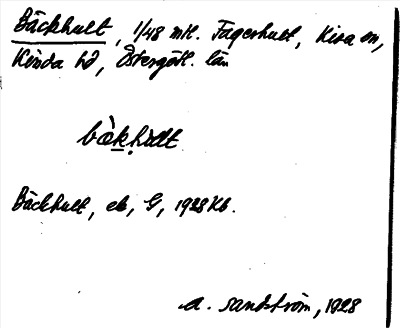 Bäckhult, 1/48 mtl. Fagerhult, Kisa sn,
Kinda hd, Östergötl. län
Bäckhult, eb, G, 1928 Kb.
A. Sandström, 1928